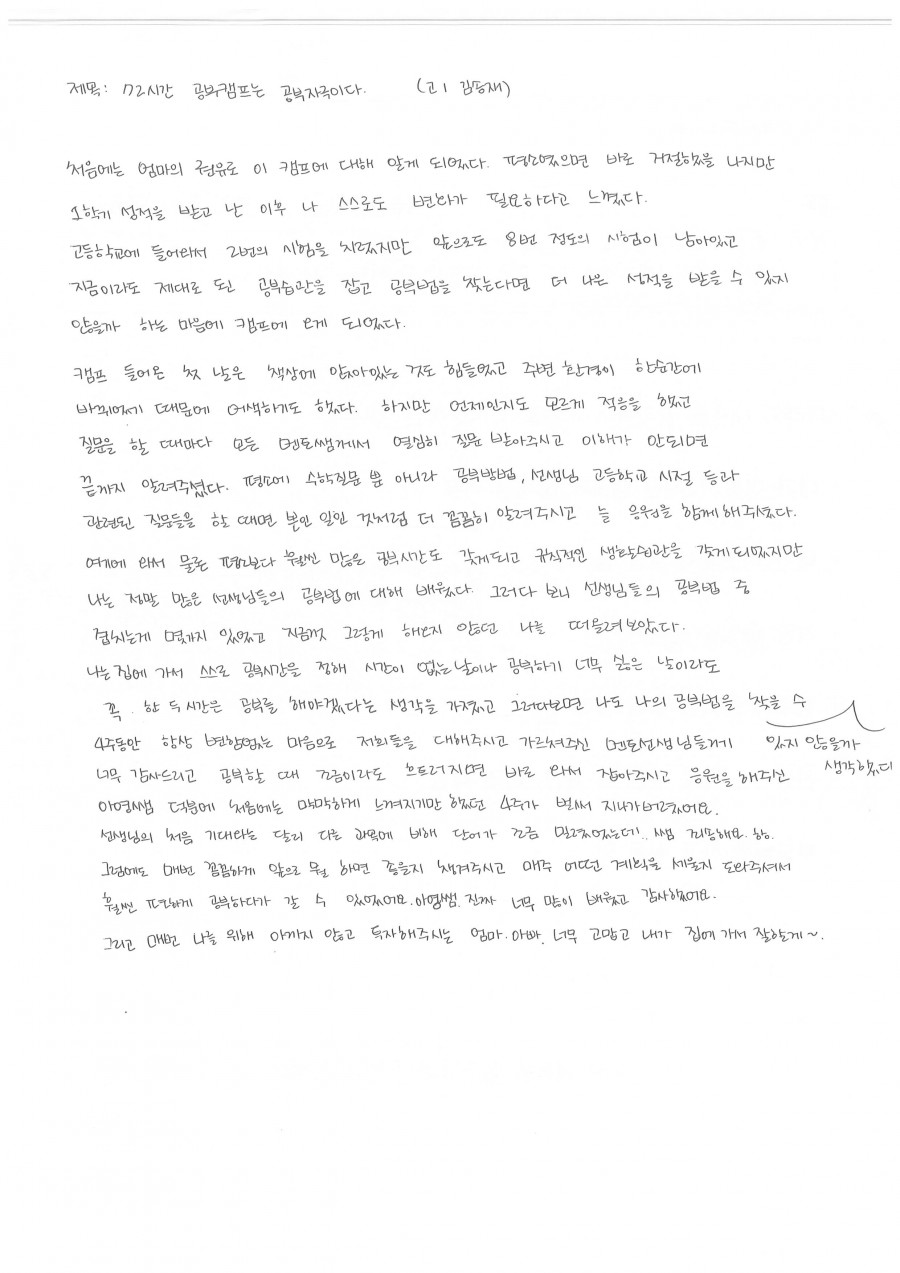 제목: 72시간 공부캠프는 공부자극이다. (고1 김승재)
처음에는 엄마의 권유로 이 캠프에 대해 알게 되었다. 평소였으면 바로 거절했을 나지만
1학기 성적을 받고 난 이후 나 스스로도 변화가 필요하다고 느꼈다.
고등학교에 들어와서 2번의 시험을 치렀지만 앞으로도 8번 정도의 시험이 남아있고
지금이라도 제대로 된 공부습관을 잡고 공부법을 찾는다면 더 나은 성적을 받을 수 있지
않을까 하는 마음에 캠프에 오게 되었다.
캠프 들어온 첫 날은 책상에 앉아있는 것도 힘들었고 주변 환경이 한순간에
바뀌었기 때문에 어색하기도 했다. 하지만 언제인지도 모르게 적응을 했고
질문을 할 때마다 모든 멘토쌤께서 열심히 질문 받아주시고 이해가 안되면
끝까지 알려주셨다. 평소에 수학질문 뿐 아니라 공부방법, 선생님 고등학교 시절 등과
관련된 질문들을 할 때면 본인 일인 것처럼 더 꼼꼼히 알려주시고 늘 응원을 함께 해주셨다.
여기에 와서 물론 평소보다 훨씬 많은 공부시간도 갖게되고 규칙적인 생활습관을 갖게되었지만
나는 정말 많은 선생님들의 공부법에 대해 배웠다. 그러다 보니 선생님들의 공부법 중
겹치는게 몇가지 있었고 지금껏 그렇게 해오지 않았던 나를 떠올려보았다.
나는 집에 가서 스스로 공부시간을 정해 시간이 없는 날이나 공부하기 너무 싫은 날이라도
꼭 한 두시간은 공부를 해야겠다는 생각을 가졌고 그러다보면 나도 나의 공부법을 찾을 수
있지 않을까
생각했다
4주동안 항상 변함없는 마음으로 저희들을 대해주시고 가르쳐주신 멘토선생님들께
너무 감사드리고 공부할 때 조금이라도 흐트러지면 바로 와서 잡아주시고 응원을 해주신
아영쌤 덕분에 처음에는 막막하게 느껴지기만 했던 4주가 벌써 지나가버렸어요.
선생님의 처음 기대와는 달리 다른 과목에 비해 단어가 조금 밀렸었는데.. 쌤 죄송해요.
그럼에도 매번 꼼꼼하게 앞으로 뭘 하면 좋을지 챙겨주시고 매주 어떤 계획을 세울지 도와주셔서
훨씬 편하게 공부하다가 갈 수 있었어요. 아영쌤. 진짜 너무 많이 배웠고 감사했어요.
그리고 매번 나를 위해 아끼지 않고 투자해주시는 엄마. 아빠. 너무 고맙고 내가 집에 가서 잘할게~.